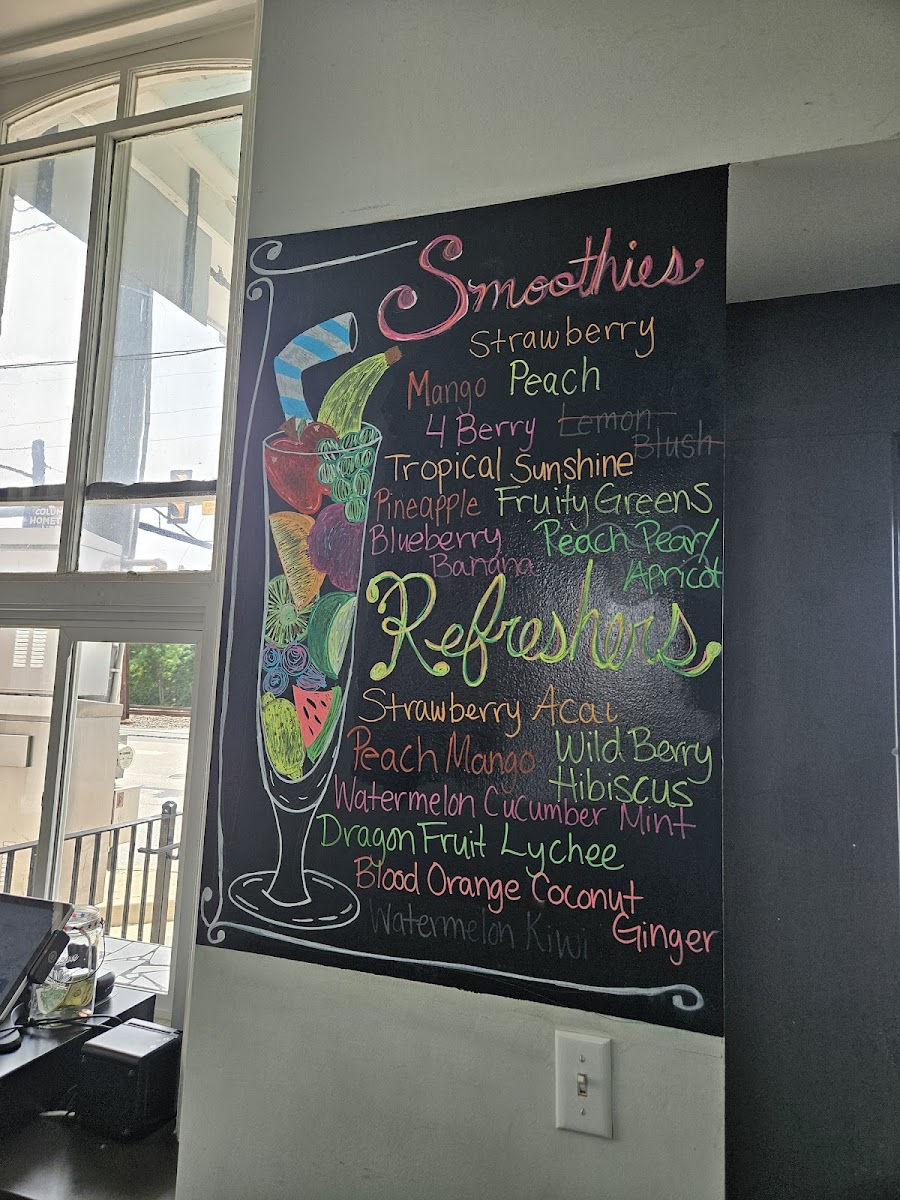 Smoothies
Strawberry
Mango Peach
4 Berry Lemon Blush
Tropical Sunshine
Pineapple Fruity Greens
Blueberry Banana
Peach Pear/ Apricot
Refreshers
Strawberry Acai
Peach Mango
Wild Berry
Hibiscus
Watermelon Cucumber Mint
Dragon Fruit Lychee
Blood Orange Coconut
Ginger
Watermelon Kiwi